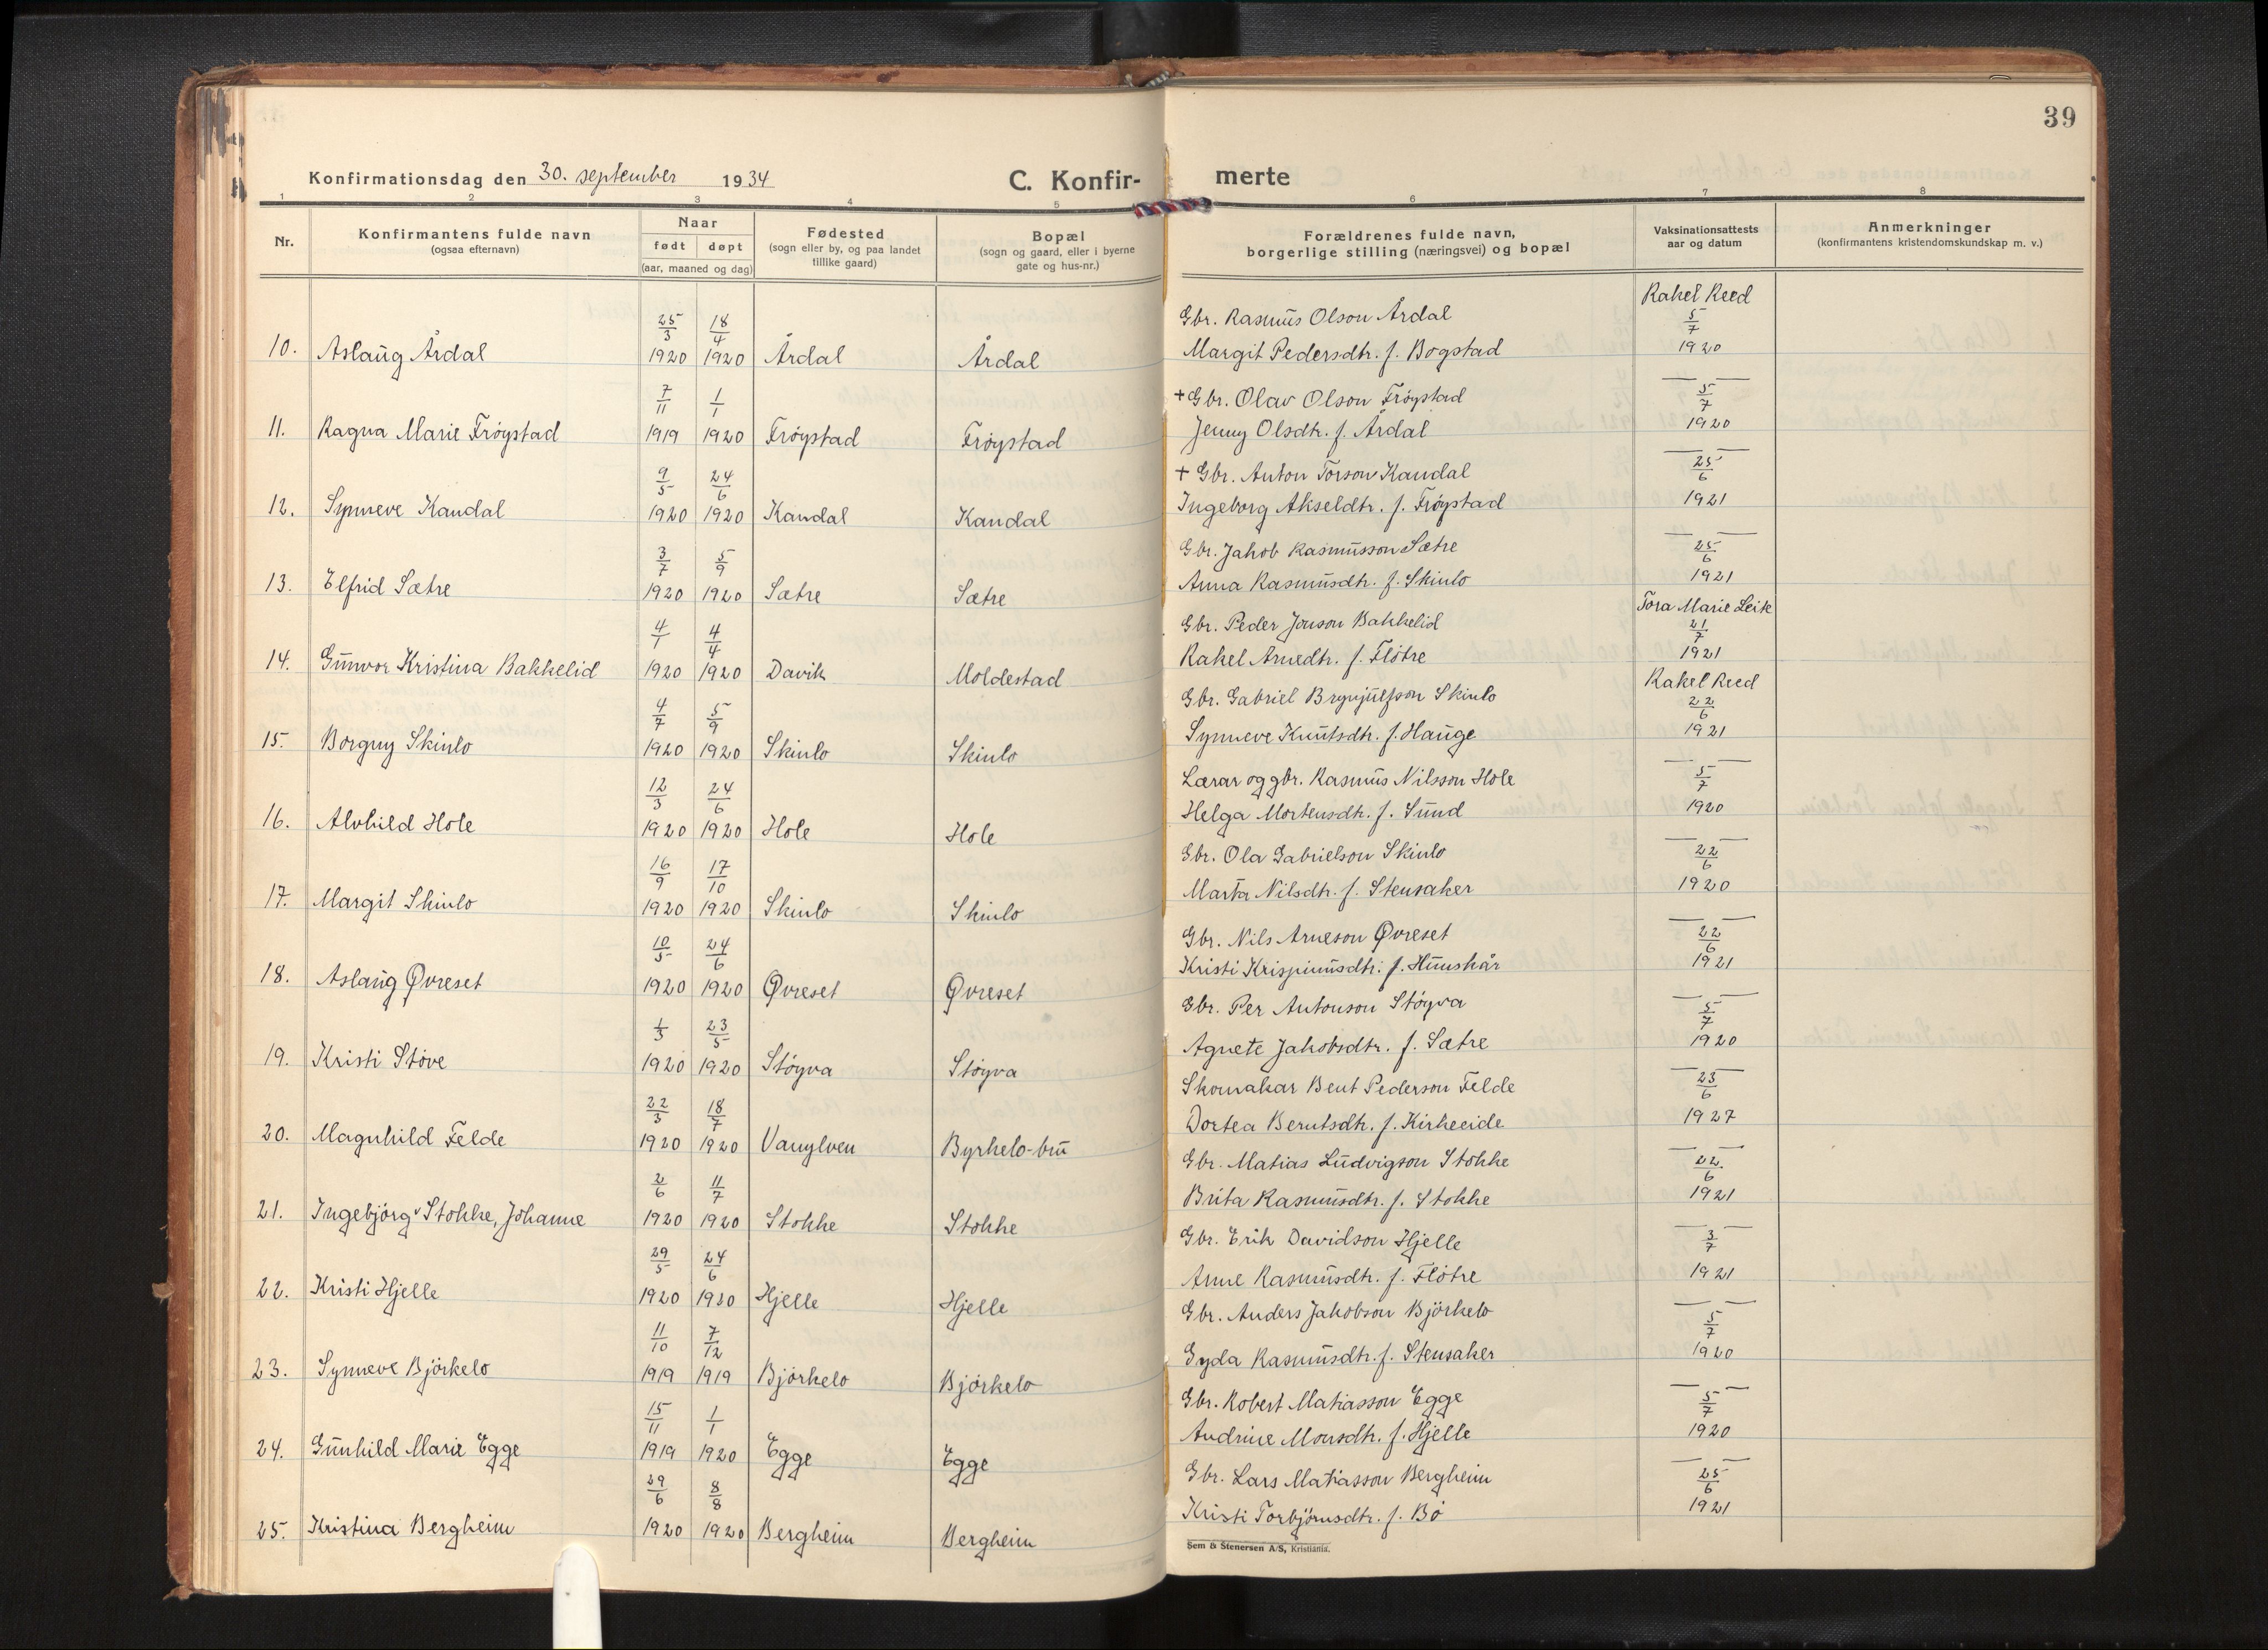 39
Konfirmationsdag den 30. september 1934
C. Konfir- merte
1 2 3 4 5 6 7 8
Nr.
Konfirmantens fulde navn
(ogsaa efternavn)
Naar
født døpt
(aar, maaned og dag)
Fødested
(sogn eller by, og paa landet
tillike gaard)
Bopæl
(sogn og gaard, eller i byerne
gate og hus-nr.)
Forældrenes fulde navn,
borgerlige stilling (næringsvei) og bopæl
Vaksinationsattests
aar og datum
Anmerkninger
(konfirmantens kristendomskundskap m. v.)
25/3 18/4 Gbr. Rasmus Olson Årdal Rakel Reed 5/7
10. Aslaug Årdal 1920 1920 Årdal Årdal Margit Pedersdtr. f. Bogstad 1920
7/11 1/1 + Gbr. Olav Olson Fröystad — 5/7 —
11. Ragna Marie Fröystad 1919 1920 Fröystad Fröystad Jenny Olsdtr. f. Årdal 1920
9/5 24/6 + Gbr. Anton Torson Kandal — 25/6 —
12. Synneve Kandal 1920 1920 Kandal Kandal Ingeborg Akseldtr. f. Fröystad 1921
3/7 5/9 Gbr. Jakob Rasmusson Sætre — 25/6 —
13. Elfrid Sætre 1920 1920 Sætre Sætre Anna Rasmusdtr. f. Skinlo 1921
4/1 4/4 Gbr. Peder Jonson Bakkelid Tora Marie Leik 21/7
14. Gunvor Kristina Bakkelid 1920 1920 Davik Moldestad Rakel Arnedtr. f. Flötre 1921
4/7 5/9 Gbr. Gabriel Brynjulfson Skinlo Rakel Reed 22/6
15. Borgny Skinlo 1920 1920 Skinlo Skinlo Synneve Knutsdtr. f. Hauge 1921
12/3 24/6 Lærar og gbr. Rasmus Nilsson Hole — 5/7 —
16. Alvhild Hole 1920 1920 Hole Hole Helga Mortensdtr. f. Sund 1920
16/9 17/10 Gbr. Ola Gabrielson Skinlo — 22/6 —
17. Margit Skinlo 1920 1920 Skinlo Skinlo Marta Nilsdtr. f. Stensaker 1920
10/5 24/6 Gbr. Nils Arneson Øvreset — 22/6 —
18. Aslaug Øvreset 1920 1920 Øvreset Øvreset Kristi Krispinusdtr. f. Hunskår 1921
1/3 23/5 Gbr. Per Antonson Stöyva — 5/7 —
19. Kristi Stöve 1920 1920 Stöyva Stöyva Agnete Jakobsdtr. f. Sætre 1920
22/3 18/7 Skomakar Bent Pederson Felde — 23/6 —
20. Magnhild Felde 1920 1920 Vanylven Byrkelo-bru Dortea Berntsdtr. f. Kirkeeide 1927
2/6 11/7 Gbr. Matias Ludvigson Stokke — 22/6 —
21. Ingebjörg ᵛ Stokke, Johanne 1920 1920 Stokke Stokke Brita Rasmusdtr. f. Stokke 1921
29/5 24/6 Gbr. Erik Davidson Hjelle — 3/7 —
22. Kristi Hjelle 1920 1920 Hjelle Hjelle Anne Rasmusdtr. f. Flötre 1921
11/10 7/12 Gbr. Anders Jakobson Björkelo — 5/7 —
23. Synneve Björkelo 1919 1919 Björkelo Björkelo Gyda Rasmusdtr. f. Stensaker 1920
15/11 1/1 Gbr. Robert Matiasson Egge — 5/7 —
24. Gunhild Marie Egge 1919 1920 Egge Egge Andrine Monsdtr. f. Hjelle 1920
29/6 8/8 Gbr. Lars Matiasson Bergheim — 25/6 —
25. Kristina Bergheim 1920 1920 Bergheim Bergheim Kristi Torbjörnsdtr. f. Bö 1921
Sem & Stenersen A/S, Kristiania.